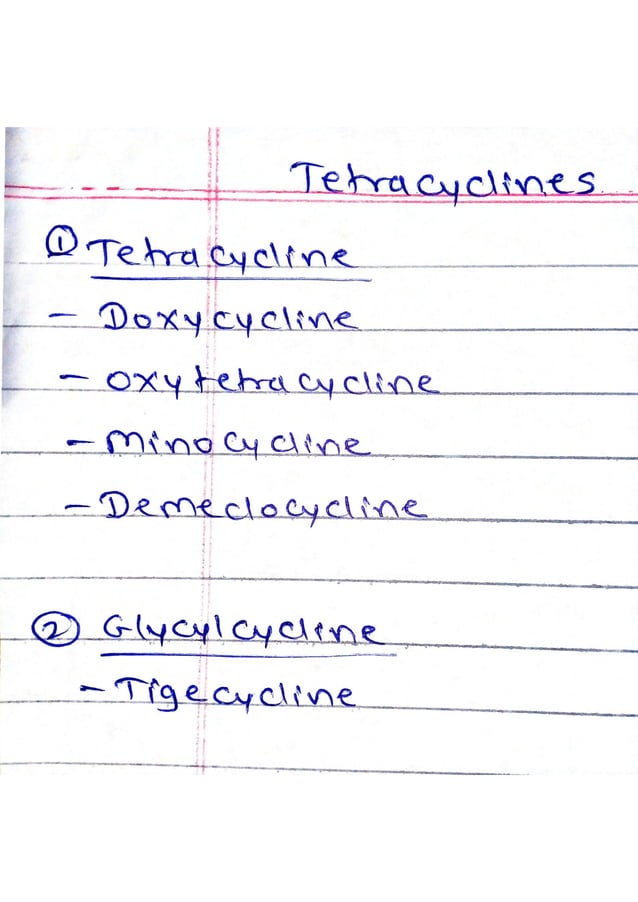 Tetracyclines
① Tetracycline
- Doxycycline
- Oxytetracycline
- Minocycline
- Demeclocycline
② Glycylcycline
- Tigecycline